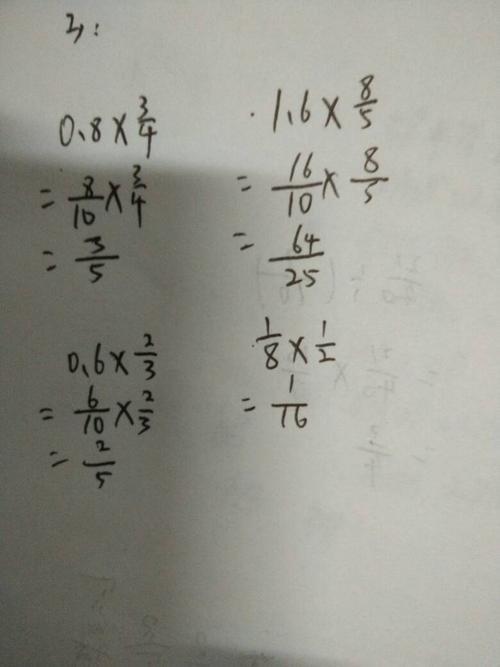 2,:
0.8×3/4
=8/10×3/4
=3/5
1.6×8/5
=16/10×8/5
=64/25
0.6×2/3
=6/10×2/3
=2/5
1/8×1/2
=1/16